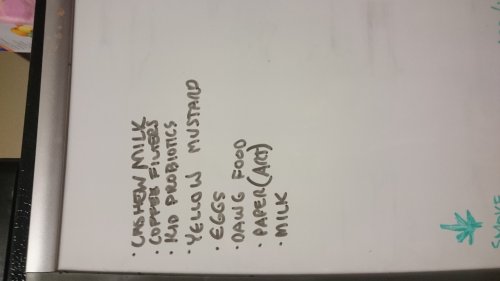 · CASHEW MILK
· COFFEE FILTERS
· KID PROBIOTICS
· YELLOW MUSTARD
· EGGS
· DAWG FOOD
· PAPER (ART)
· MILK